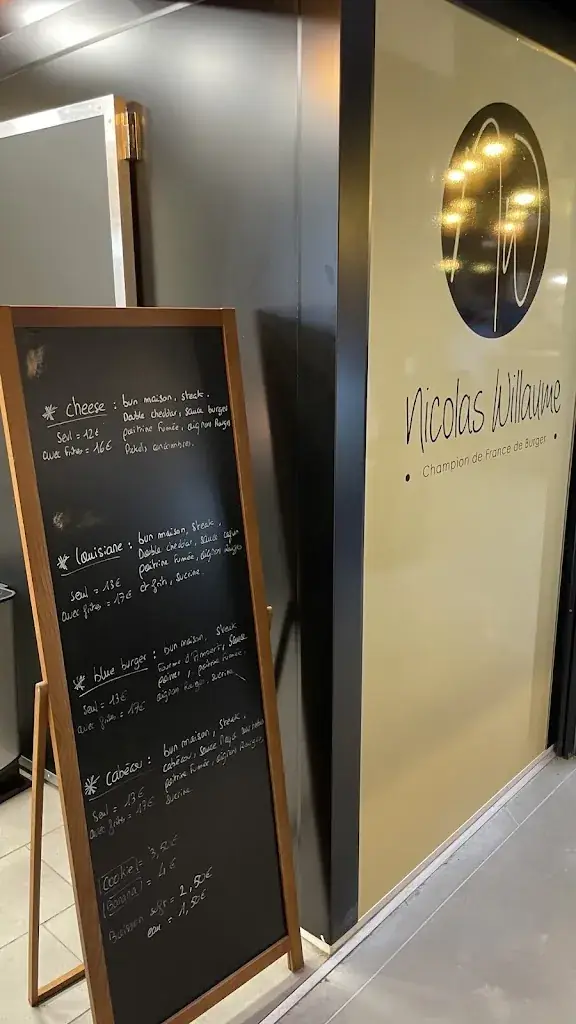 * cheese : bun maison, steak,
Double cheddar, sauce burger
Seul = 12€ poitrine fumée, oignons Rouges
avec frites = 16€ Pickels concombres.
* Louisiane : bun maison, steak,
Double cheddar, sauce cajun
poitrine fumée, oignons Rouges
Seul = 13€ et frits, sucrine.
avec frites = 17€
* blue burger : bun maison, steak
Fourme d'Ambert, Sauce
Seul = 13€ poivre, poitrine fumée,
avec frites = 17€ oignons Rouges, sucrine
* cabécou : bun maison, steak,
cabécou, sauce
Seul = 13€ poitrine fumée, oignons Rouges,
avec frites = 17€ sucrine
Cookie = 3,50€
Banana = 4€
Boisson soft = 2,50€
eau = 1,50€
NW
Nicolas Willaume
• Champion de France de Burger •